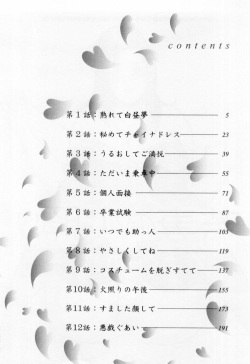 contents
第1話：熟れて白昼夢 5
第2話：秘めてチャイナドレス 23
第3話：うるおしてご満悦 39
第4話：ただいま乗車中 55
第5話：個人面接 71
第6話：卒業試験 87
第7話：いつでも助っ人 103
第8話：やさしくしてね 119
第9話：コスチュームを脱ぎすてて 137
第10話：火照りの午後 155
第11話：すました顔して 173
第12話：悪戯ぐあい 191